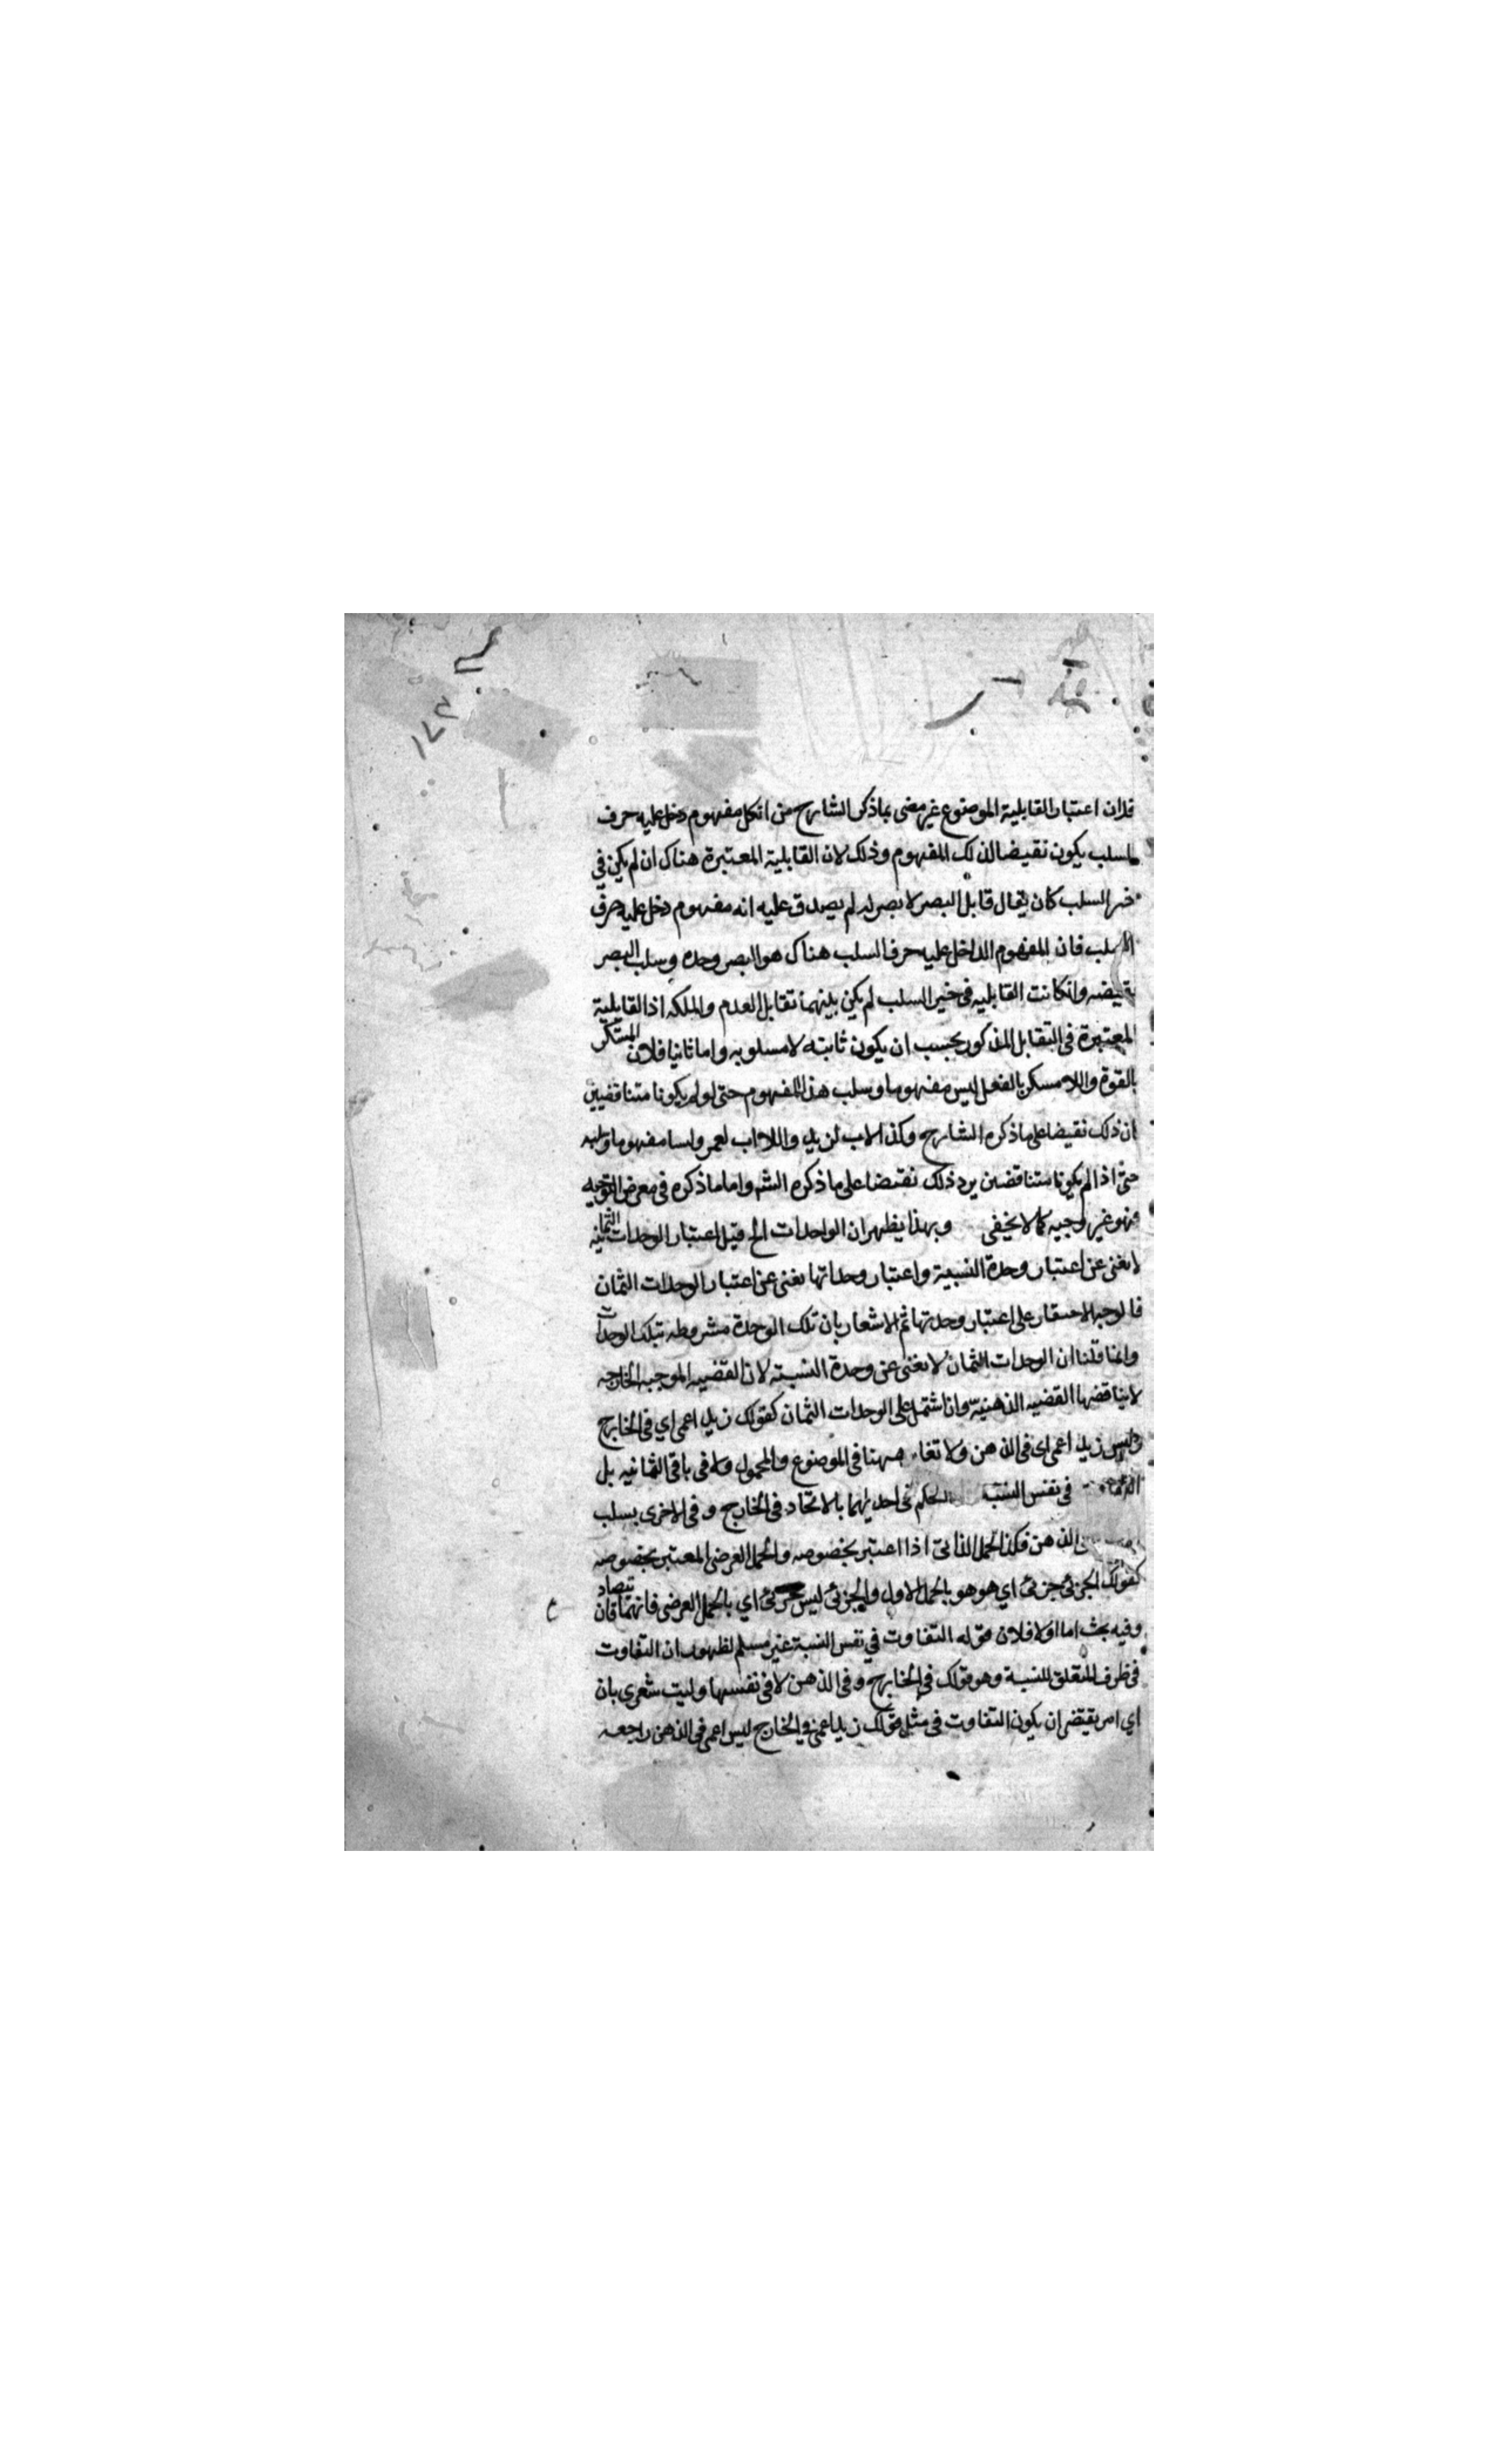 ١٧٤
فلان اعتبار القابلية الموضوع غير مضى بماذكر الشارح من انكل مفهوم دخل عليه حرف
السلب يكون نقيضا لذلك المفهوم وذلك لان القابلية المعتبرة هناك ان لم يكن في
خبر السلب كان يقال قابل البصر لا بصر له لم يصدق عليه انه مفهوم دخل عليه حرف
السلب فان المفهوم الداخل عليه حرف السلب هناك هو البصر وحده وسلب البصر
نقيضه وانكانت القابليه في خبر السلب لم يكن بينهما تقابل العدم والملكه اذ القابلية
المعتبرة في التقابل المذكور بحسب ان يكون ثابته لا مسلوبه واما ثانيا فلان المسكر
بالقوة واللا مسكر بالفعل ليس مفهوما وسلب هذا المفهوم حتى لو لم يكونا متناقضين
ان ذلك نقيضا على ماذكره الشارح وكذا الاب لزيد واللا اب لعمر وليسا مفهوما وسلبه
حتى اذا لم يكونا متناقضين يرد ذلك نقيضا على ما ذكره الشه واما ما ذكره في معرض التوجيه
فهو غير وجيه كما لا يخفى وبهذا يظهر ان الواحدات الخ قيل اعتبار الوحدات الثمانيه
لا يغنى عن اعتبار وحدة النسبية واعتبار وحداتها يغنى عن اعتبار الوحدات الثمان
فالوجه الاحتقار على اعتبار وحدتها ثم الاشعار بان تلك الوحدة مشروطه بتلك الوحدات
وانما قلنا ان الوحدات الثمان لا يغنى عن وحدة النسبته لان القضيه الموجبه الخارجه
لا يناقضها القضيه الذهنيه وان اشتمل على الوحدات الثمان كقولك زيد اعمى اي في الخارج
وليس زيد اعمى اى في الذهن ولا تغاير ههنا في الموضوع والمحمول ولا في باقى الثمانيه بل
في نفس النسبة الحكم في احديهما بالاتحاد في الخارج و في الاخرى بسلب
الذهن فكذا الحمل الذاتى اذا اعتبر بخصوصه والحمل العرضى المعتبر بخصوصه
كقولك الجزئى جزئى اي هو هو بالحمل الاول والجزئى ليس جزئى اي بالحمل العرضى فانهما يتصادقان
وفيه بحث اما اولا فلان قوله التفاوت في نفس النسبة غير مسلم لظهور ان التفاوت
في ظرف المتعلق للنسبة وهو قولك في الخارج و في الذهن لا في نفسها وليت شعرى بان
اي امر يقتضى ان يكون التفاوت في مثل قولك زيد اعمى في الخارج ليس اعمى في الذهن راجعه